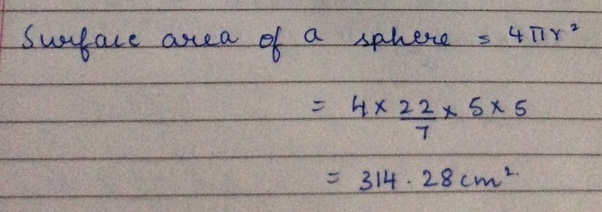 Surface area of a sphere = 4πr²
= 4 × 22/7 × 5 × 5
= 314.28 cm².